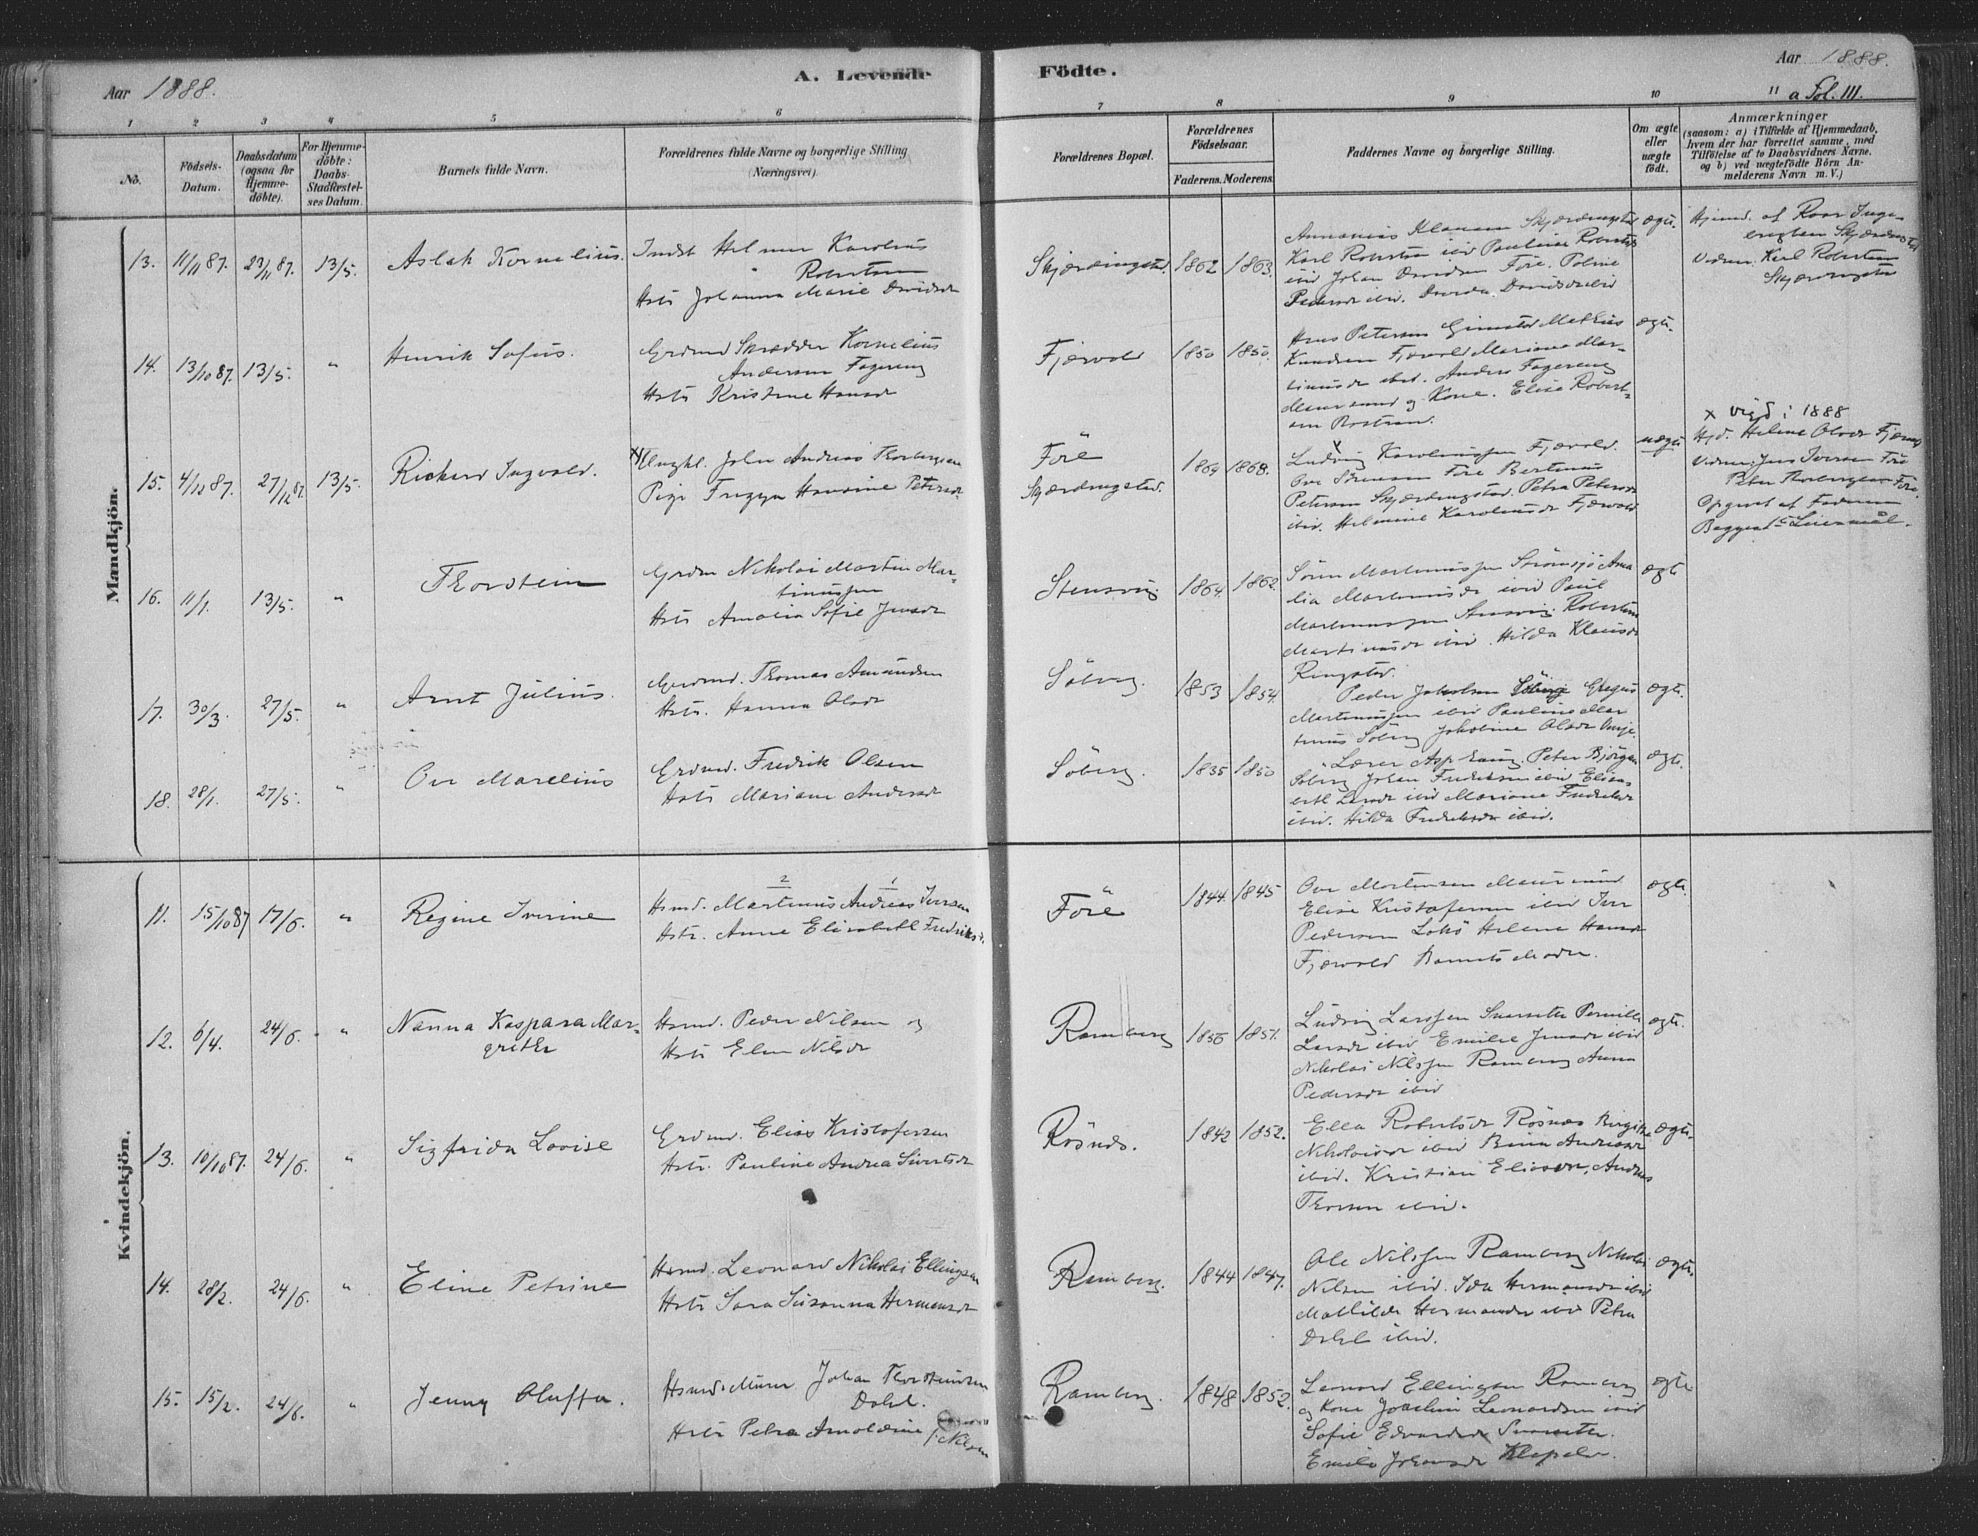 Aar 1888.
A. Levende
Födte.
Aar 1888.
a Fol. 111.
1 2 3 4 5 6 7 8 9 10 11
No.
Födsels-
Datum.
Daabsdatum
(ogsaa for
Hjemme-
döbte).
For Hjemme-
döbte:
Daabs-
Stadfæstel-
ses Datum.
Barnets fulde Navn.
Forældrenes fulde Navne og borgerlige Stilling
(Næringsvei)
Forældrenes Bopæl.
Forældrenes
Födselsaar.
Faderens. Moderens.
Faddernes Navne og borgerlige Stilling.
Om ægte
eller
uægte
födt.
Anmærkninger
(saasom: a) i Tilfælde af Hjemmedaab,
hvem der har forrettet samme, med
Tilföielse af to Daabsvidners Navne.
og b) ved uægtefödte Börn An-
melderens Navn m. V.)
Mandkjön.
13. 11/11 87. 23/11 87. 13/5. Aslak Kornelius.
Indst Helmer Karolius
Robertsen
Hstr Johanna Marie Davidsdr
Skjærdingstad. 1862 1863.
Karl Robertsen ibid Pauline Roberts
ibid Johan Davidsen Före.
Pedersdr ibid.
ægte.
Hjemd. af Roar Inge-
Vidner: Karl Robertsen
14. 13/10 87. 13/5. " Henrik Sofus.
Grdmd Skrædder Kornelius
Andersen Fagereng
Hstr Kristine Hansdr
Fjærvold 1850 1850.
Hans Petersen Gimstad Mathias
Knudsen Fjærvold Mariane Mar-
tinusdr ibid. Anders Fagereng
og Kone. Elise Robert-
ægte.
15. 4/12 87. 27/12 87. 13/5. Rickard Ingvald.
x Ungkl. John Andreas Thorbergsen
Pige Fregga Hansine Petersdr
Före
Skjærdingstad. 1864 1868.
Ludvig Karoliussen Fjærvold.
Ove Sörensen Före Bertinus
Petersen Skjærdingstad. Petra Petersdr
ibid. Helmine Karoliusdr Fjærvold
uægte
x vigd i 1888
Hjd. Helene Olsdr Fjærvold
Vidner: Jens Iversen Före
Peter Thorbergsen Före.
Opgivet af Faderen
Begges 1ste Leiermaal.
16. 11/1. 13/5. " Thorstein
Grdm Nikolai Martin Mar-
tinussen
Hstr Amalia Sofie Jensdr
Stensvig 1864. 1862.
Sören Martinussen Strömsjö Ama
lia Martinusdr ibid Paul
Martinussen Stensvig. Robertine
Martinusdr ibid. Hilda Klausdr
Ringstad.
ægte
17. 30/3. 27/5. " Arnt Julius.
Grdmd. Thomas Amundsen
Hstr. Hanna Olsdr
Söberg. 1853 1854.
Peder Jakobsen Söberg Gregus
Martinussen ibid Pauline Mar
tinus Söberg Jakobine Olsdr
ægte.
18. 28/1. 27/5. " Ove Marelius
Grdmd. Fredrik Olsen
Hstr Mariane Andersdr
Söberg. 1835 1850
Lærer Asphaug. Peter Björgen
Söberg Johan Fredriksen ibid Elisa
beth Larsdr ibid Mariane Fredriksdr
ibid. Hilda Fredriksdr ibid.
ægte.
Kvindekjön.
11. 15/10 87 17/6. " Regine Iverine
2 1
Hsmd. Martinus Andreas Iversen
Hstr. Anne Elisabeth Fredriksd.
Före 1844. 1845
Ove Mortensen Maursund
Elise Kristofersen ibid Iver
Pedersen Lokö Helene Hansdr
Fjærvold Barnets Moder.
ægte.
12. 6/4. 24/6. " Nanna Kaspara Mar-
grethe
Hsmd. Peder Nilsen og
Hstr Elen Nilsdr
Ramberg 1856 1851.
Ludvig Larssen Svarholt Pernille
Larsdr ibid Emilie Jensdr ibid
Nikolai Nilssen Ramberg Anna
Pedersdr ibid
ægte.
13. 10/10 87. 24/6. " Sigfrida Lovise
Grdmd. Elias Kristofersen
Hstr. Pauline Andrea Sivertsdr
Rösnæs. 1842 1852.
Ella Robertsdr Rösnæs Birgithe
Nikolaisdr ibid Bina Andreasdr
ibid. Kristian Eliassen, Andreas
Thorsen ibid.
ægte.
14. 28/2. 24/6. " Eline Petrine
Hsmd. Leonard Nikolai Ellingsen
Hstr Sara Susanna Hermansdr
Ramberg. 1844 1847.
Ole Nilssen Ramberg Nikolai
Nilsen ibid. Ida Hermansdr ibid
Mathilde Hermansdr ibid Petra
Dahl ibid.
ægte.
15. 15/2. 24/6. " Jenny Oluffa.
Hsmd. Murer Johan Thorsteinsen
Dahl.
Hstr Petra Arnoldine Nilsen
Ramberg. 1848 1852.
Leonard Ellingsen Ramberg
og Kone Joachim Leonardsen ibid
Sofie Edvardsdr
Emilie Johansdr
ægte